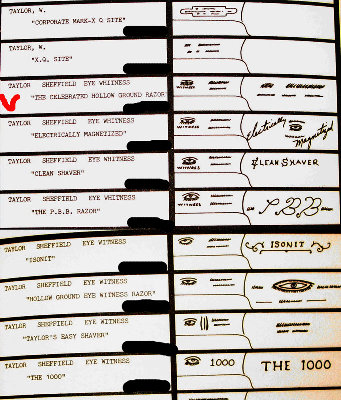 TAYLOR, W.
"CORPORATE MARK-X Q SITE"
TAYLOR, W.
"X.Q. SITE"
TAYLOR SHEFFIELD EYE WHITNESS
"THE CELEBRATED HOLLOW GROUND RAZOR
TAYLOR SHEFFIELD EYE WHITNESS
"ELECTRICALLY MAGNETIZED"
WITNESS
Electrically
Magnetized
TAYLOR SHEFFIELD EYE WHITNESS
"CLEAN SHAVER"
WITNESS
CLEAN SHAVER
TAYLOR SHEFFIELD EYE WHITNESS
"THE P.B.B. RAZOR"
WITNESS
P.B.B.
TAYLOR SHEFFIELD EYE WITNESS
"ISONIT"
ISONIT
TAYLOR SHEFFIELD EYE WITNESS
"HOLLOW GROUND EYE WITNESS RAZOR"
TAYLOR SHEFFIELD EYE WITNESS
"TAYLOR'S EASY SHAVER"
TAYLOR SHEFFIELD EYE WITNESS
"THE 1000"
1000
THE 1000